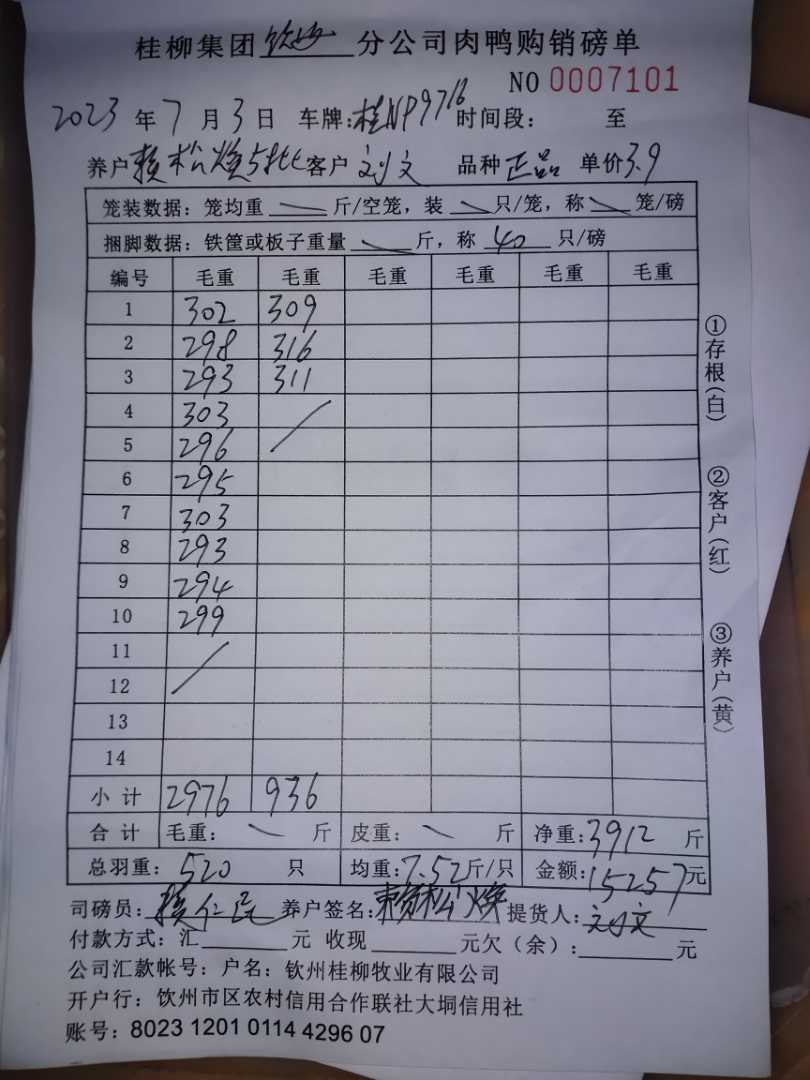 桂柳集团钦州分公司肉鸭购销磅单
NO 0007101
2023年7月3日 车牌:桂NP9716 时间段: 至
养户赖松焕5批客户刘文 品种正品 单价3.9
笼装数据:笼均重 斤/空笼,装 只/笼,称 笼/磅
捆脚数据:铁筐或板子重量 斤,称 40 只/磅
编号 毛重 毛重 毛重 毛重 毛重 毛重
1 302 309
2 298 316
3 293 311
4 303
5 296
6 295
7 303
8 293
9 294
10 299
11
12
13
14
小计 2976 936
合计 毛重: 斤 皮重: 斤 净重:3912 斤
总羽重:520 只 均重:7.52斤/只 金额:15257元
司磅员:赖仁民 养户签名:赖松焕 提货人:刘文
付款方式:汇 元 收现 元欠(余): 元
公司汇款帐号:户名:钦州桂柳牧业有限公司
开户行:钦州市区农村信用合作联社大垌信用社
账号:8023 1201 0114 4296 07
①存根(白)
②客户(红)
③养户(黄)